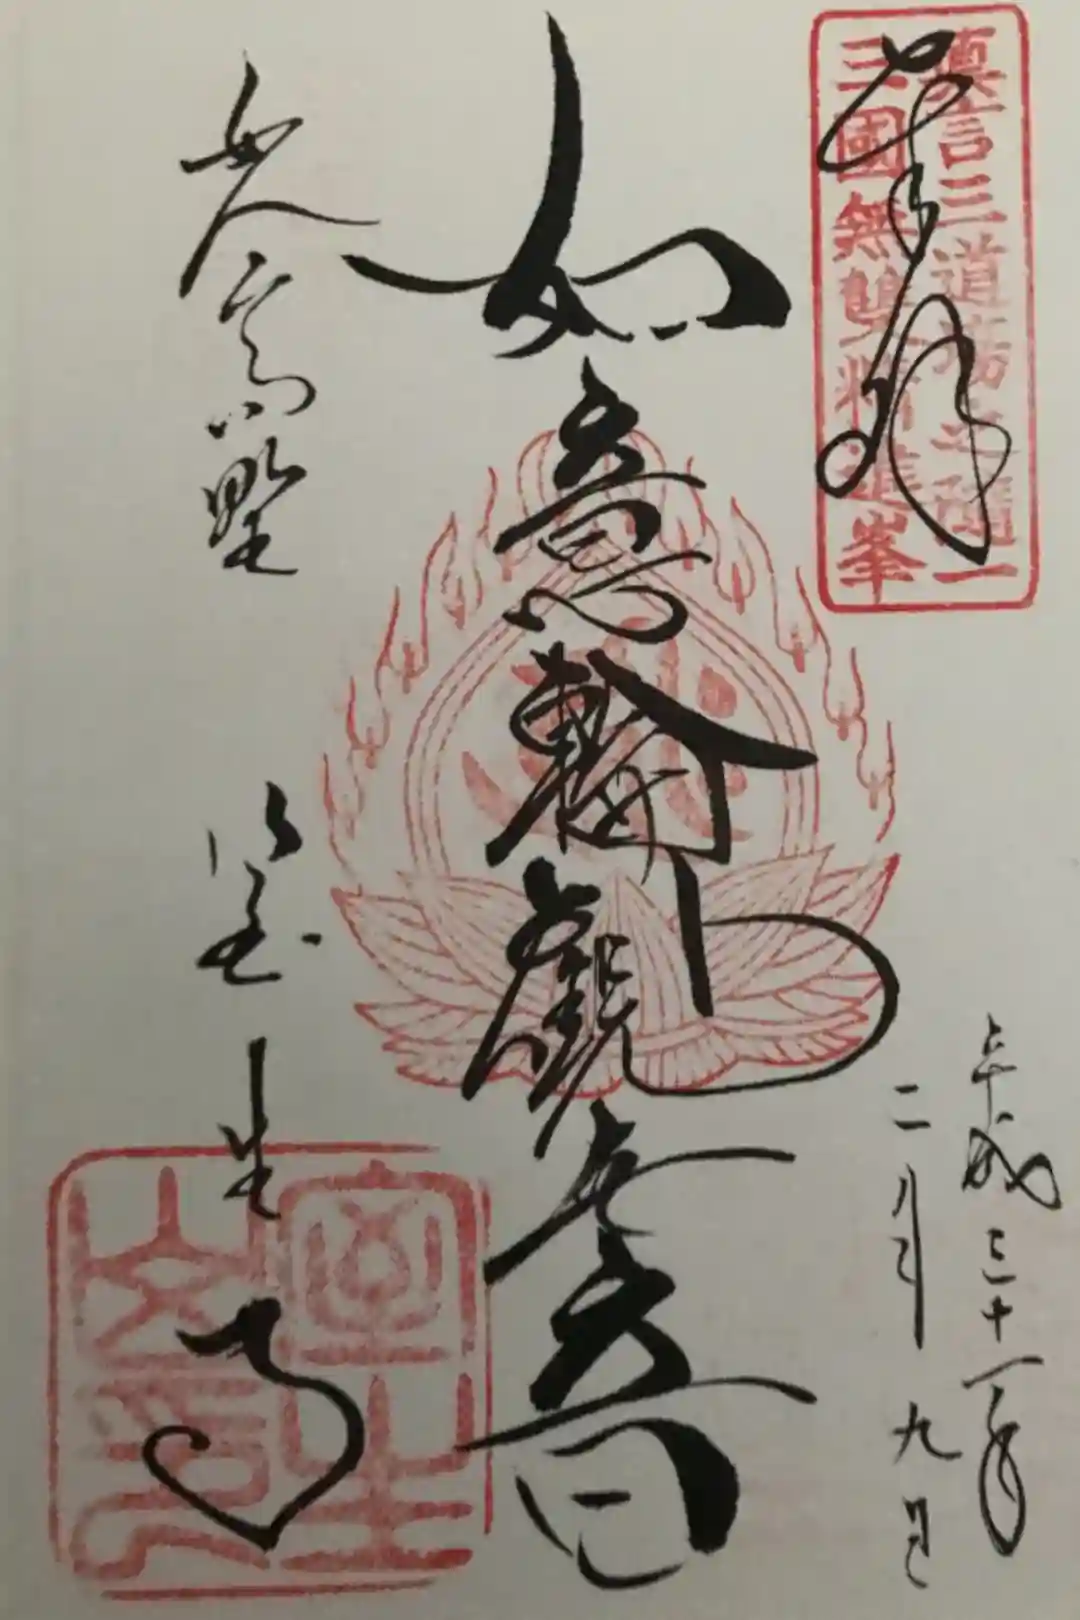 奉拝
真言三道場之随一
三國無雙精進峯
平成三十一年
二月九日
如意輪観世音
女人高野
室生寺
室生山印